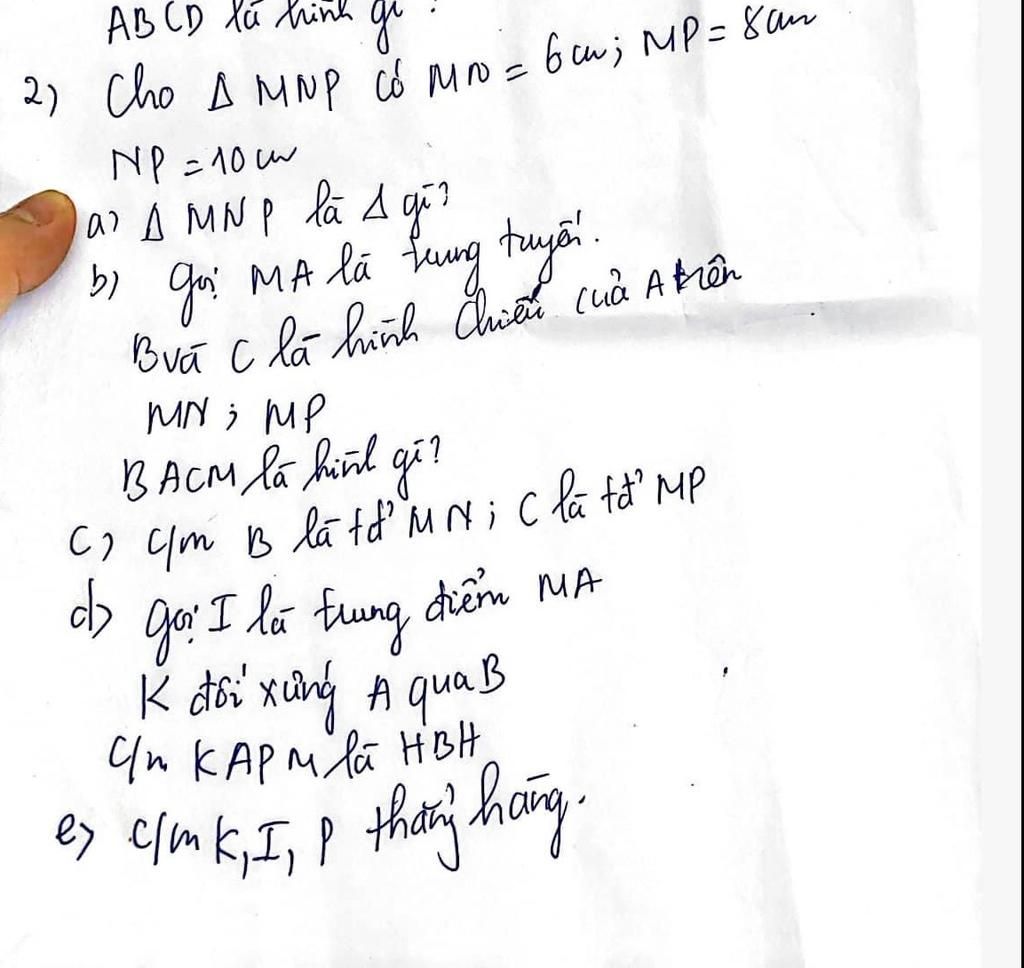 ABCD là hình gì?
2) Cho Δ MNP có MN = 6cm; MP = 8cm
NP = 10cm
a) Δ MNP là Δ gì?
b) gọi MA là trung tuyến.
B và C là hình chiếu của A trên
MN; MP
BACM là hình gì?
c) c/m B là tđ' MN; C là tđ' MP
d) gọi I là trung điểm MA
K đối xứng A qua B
C/m KAPM là HBH
e) c/m K, I, P thẳng hàng.